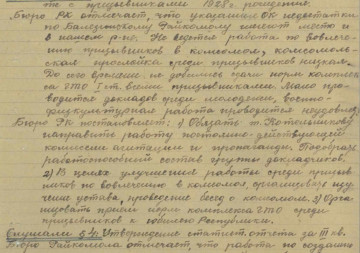 те с призывниками 1928 г. рождения.
Бюро РК отмечает, что указанные ОК недостатки
по Балейскому Райкомолу имеют место и
в нашем р-не. Не ведется работа по вовлече-
нию призывников в комсомол, комсомоль-
ская прослойка среди призывников низкая.
До сего времени не добились сдачи норм комплек
са ГТО I ст. всеми призывниками. Мало про-
водится докладов среди молодежи, военно-
физкультурная работа проводится неудовлет.
Бюро РК постановляет: 1) Обязать т. Котельникову
направить работу постоянно-действующей
комиссии агитации и пропаганды. Подобрать
работоспособный состав группы докладчиков.
2) В целях улучшения работы среди призыв
ников по вовлечению в комсомол, организовать изу
чение устава, проведение бесед о комсомоле. 3) Орга
низовать прием норм комплекса ГТО среди
призывников к юбилею Республики.
Слушали § 4. Утверждение статист. отчета за III кв.
Бюро Райкомола отмечает, что работа по созданию